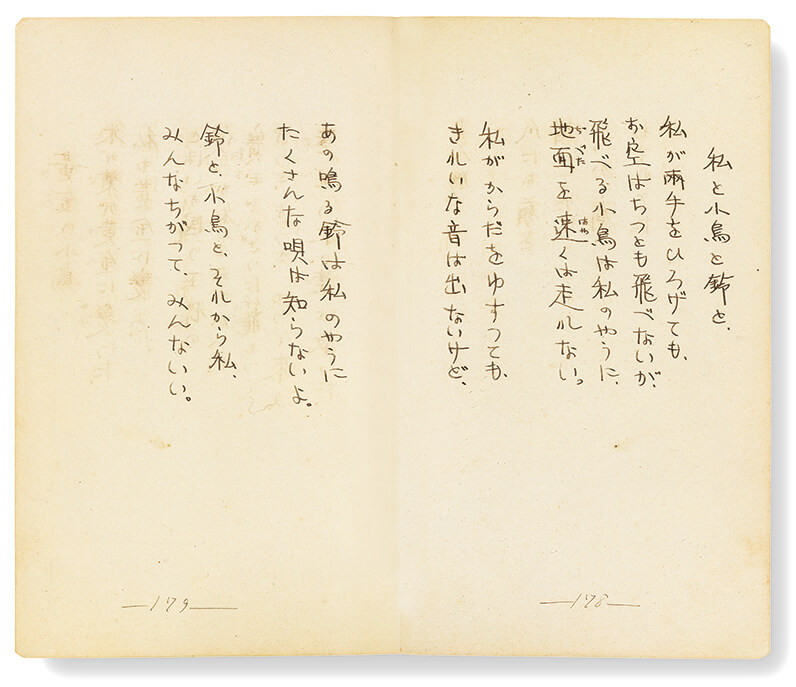 私と小鳥と鈴と、
私が両手をひろげても、
お空はちつとも飛べないが、
飛べる小鳥は私のやうに、
地面を速くは走れない。
じべた
はや
私がからだをゆすつても、
きれいな音は出ないけど、
あの鳴る鈴は私のやうに
たくさんな唄は知らないよ。
鈴と、小鳥と、それから私、
みんなちがつて、みんないい。
178
179